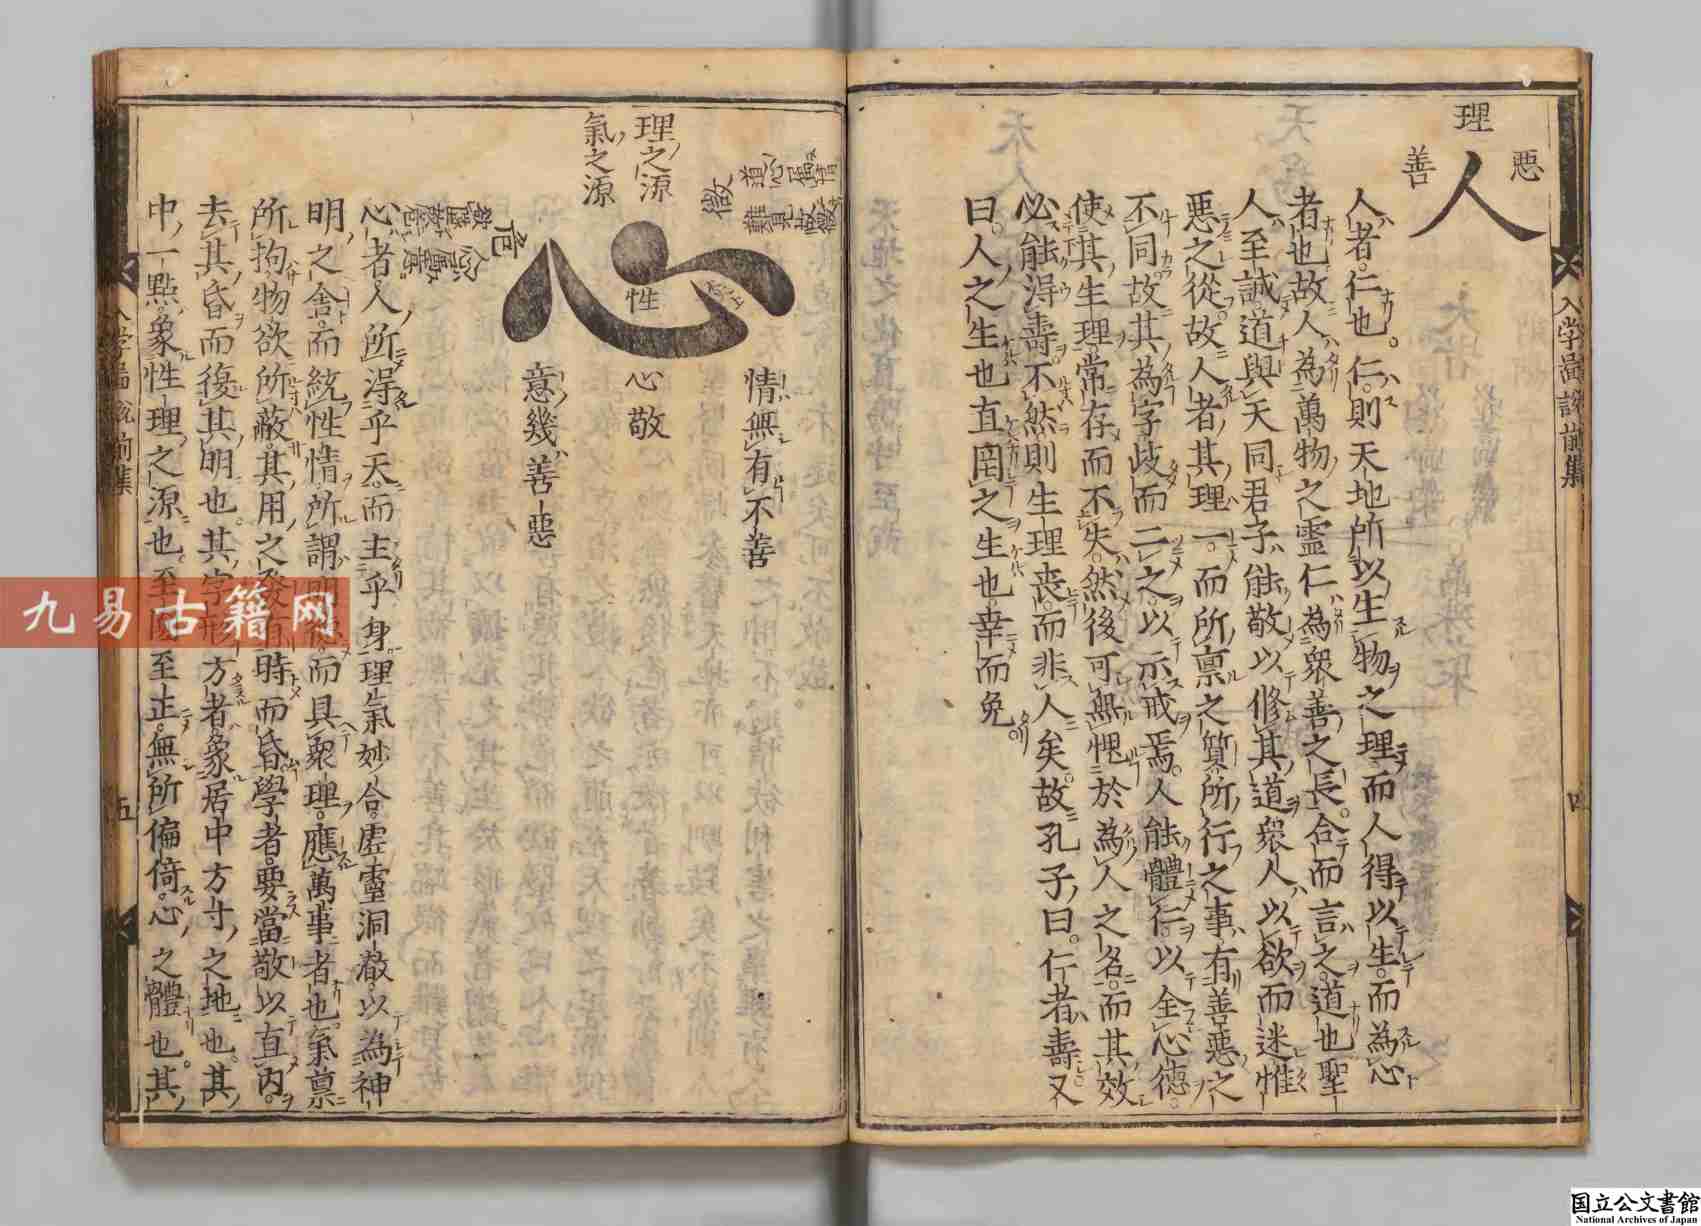 理
惡
善
人
人者仁也。仁則天地所以生物之理而人得以生而為心
者也故人為萬物之靈仁為衆善之長合而言之道也聖
人至誠道與天同君子能敬以修其道衆人以欲而迷惟
惡之從故人者其理一而所禀之質所行之事有善惡之
不同故其為字歧而二之以示戒焉人能體仁以全心德。
使其生理常存而不失然後可無愧於為人之名而其效
必能得壽不然則生理喪而非人矣故孔子曰仁者壽又
曰人之生也直罔之生也幸而免
入学啚説前集
四
情
道心属
微
難見故微
理之源
氣之源
心
性
危
情無有不善
心敬
意幾善惡
心者人所得乎天而主乎身理氣妙合虛靈洞澈以為神
明之舍而統性情所謂明德而具衆理應萬事者也氣禀
所拘物欲所蔽其用之發有時而昏學者要當敬以直内
去其昏而復其明也。其字形方者象居中方寸之地也其
中一點象性理之源也至圓至正無所偏倚心之體也其
入学啚説前集
五
九易古籍网
国立公文書館
National Archives of Japan